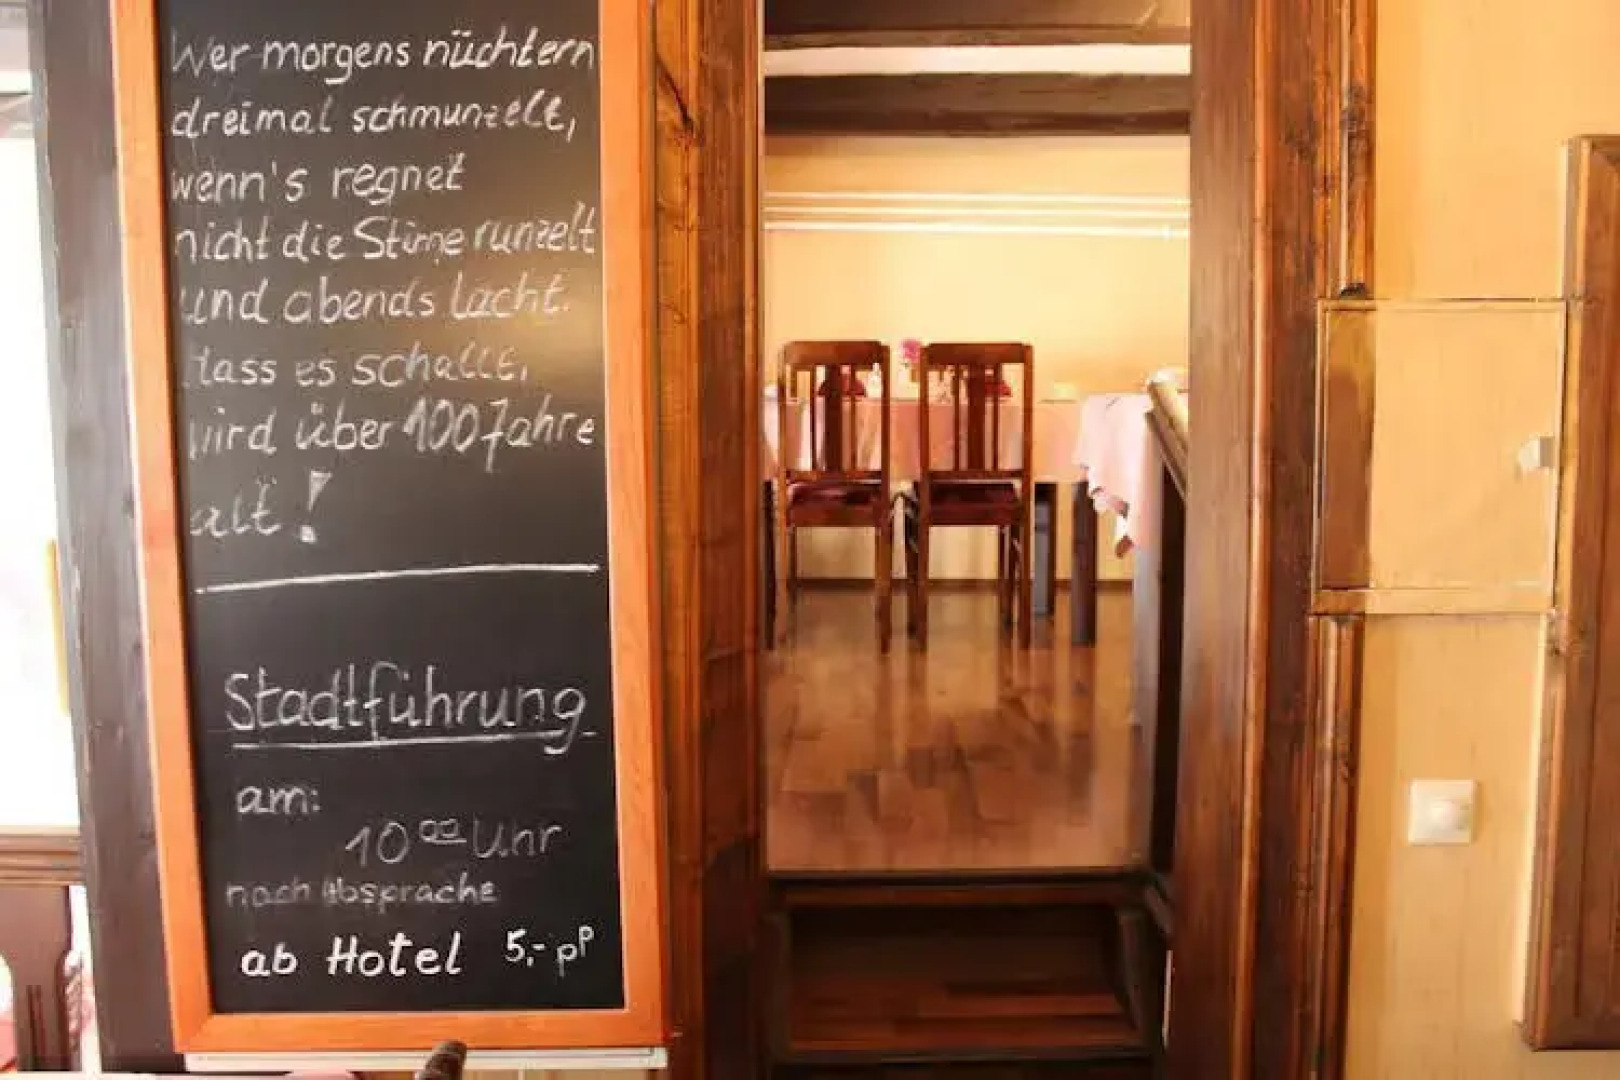 Wer morgens nüchtern
dreimal schmunzelt,
wenn's regnet
nicht die Stirne runzelt
und abends lacht.
dass es schallt,
wird über 100 Jahre
alt!
Stadtführung
am:
10 00 Uhr
nach Absprache
ab Hotel 5,- pP